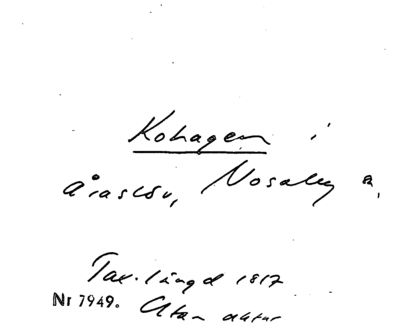 Kohagen i
Åraslöv, Nosaby s.
Tax. längd 1817
Nr 7949. Utan datum